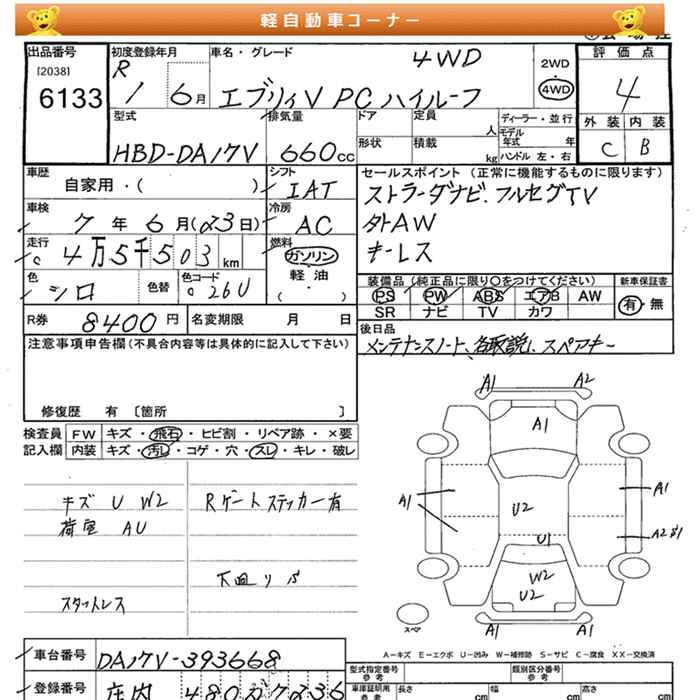 軽自動車コーナー
出品番号
[2038]
6133
初度登録年月
R 1 6月
車名・グレード
4WD
エブリィV PC ハイルーフ
2WD
・
4WD
評価点
4
外装 内装
C B
型式
HBD-DA17V
排気量
660cc
ドア
定員
人
形状
積載
kg
ディーラー・並行
モデル年式 年
ハンドル 左・右
車歴
自家用・( )
シフト
IAT
車検
7年6月(23日)
冷房
AC
走行
4万5千503km
燃料
ガソリン
軽油
( ・ )
色
シロ
色替
色コード
26U
セールスポイント (正常に機能するものに限ります)
ストラーダナビ、フルセグTV
外AW
キーレス
装備品(純正品に限り○をつけてください)
PS PW ABS エアB AW
SR ナビ TV カワ
新車保証書
有・無
R券 8400円
名変期限 月 日
後日品
メンテナンスノート、各取説、スペアキー
注意事項申告欄(不具合内容等は具体的に記入して下さい)
修復歴 有 [箇所 ]
検査員記入欄
FW キズ・飛石・ヒビ割・リペア跡・×要
内装 キズ・汚レ・コゲ・穴・スレ・キレ・破レ
キズ U W2
荷室 AU
スタットレス
Rゲートステッカー有
下回りパ
A1 A2
A1
A1
U2
A1
U1
W2
U2
A1 A1
スペア
A−キズ E−エクボ U−凹み W−補修跡 S−サビ C−腐食 XX−交換済
車台番号 DA17V-393668
登録番号 庄内 480
型式指定番号
類別区分番号
車庫証明用参考
長さ cm
幅 cm
高さ cm